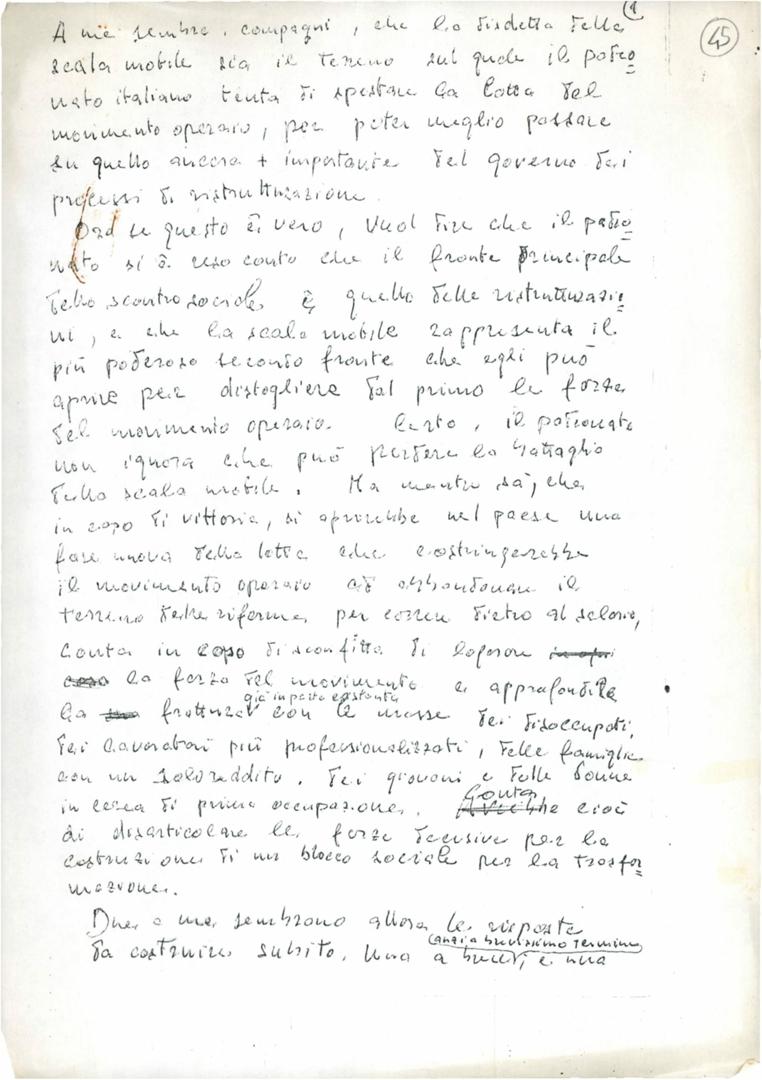 1
45
A me sembra, compagni, che la disdetta della
scala mobile sia il terreno sul quale il padro=
nato italiano tenta di spostare la lotta del
movimento operaio, per poter meglio passare
su quello ancora + importante del governo dei
processi di ristrutturazione.
Ora se questo è vero, vuol dire che il padro=
nato si è reso conto che il fronte principale
dello scontro sociale è quello delle ristrutturazio=
ni, e che la scala mobile rappresenta il
più poderoso secondo fronte che egli può
aprire per distogliere dal primo le forze
del movimento operaio. Certo, il padronato
non ignora che può perdere la battaglia
della scala mobile. Ma mentre sà, che
in caso di vittoria, si aprirebbe nel paese una
fase nuova della lotta che costringerebbe
il movimento operaio ad abbandonare il
terreno delle riforme per correre dietro al salario,
conta in caso di sconfitta di logorare
la forza del movimento e approfondire
già in parte esistente
la frattura con le masse dei disoccupati,
dei lavoratori più professionalizzati, delle famiglie
con un solo reddito, dei giovani e delle donne
in cerca di prima occupazione. Conta cioè
di disarticolare le forze decisive per la
costruzione di un blocco sociale per la trasfor=
mazione.
Due a me sembrano allora le risposte
da costruire subito. Una a breve, (anzi a brevissimo termine) e una